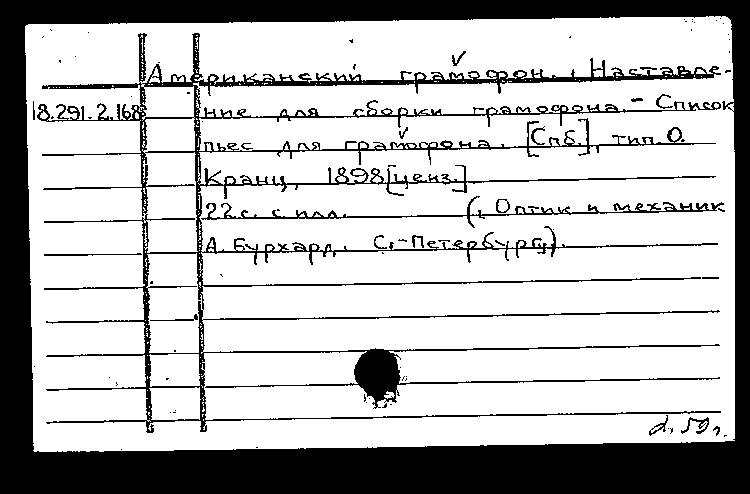 Американский грамофон. Наставле-
18.291.2.168 ние для сборки грамофона. - Список
пьес для грамофона. [Спб.], тип. О.
Кранц, 1898 [ценз.]
22 с. с илл. (. Оптик и механик
А. Бурхард. С.-Петербург).